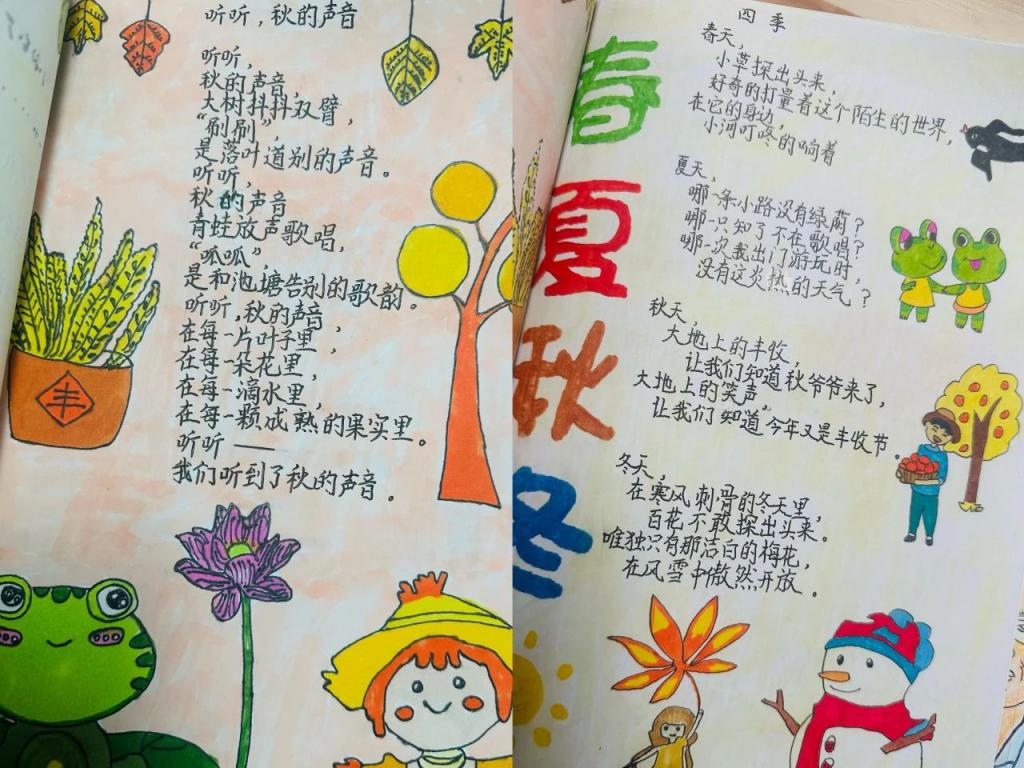 听听,秋的声音
听听,
秋的声音,
大树抖抖双臂,
“刷刷”,
是落叶道别的声音。
听听,
秋的声音
青蛙放声歌唱,
“呱呱”
是和池塘告别的歌韵。
听听,秋的声音,
在每一片叶手里,
在每一朵花里,
在每一滴水里,
在每一颗成熟的果实里。
听听——
我们听到了秋的声音。
丰
四季
春天,
小草探出头来,
好奇的打量着这个陌生的世界,
在它的身边,
小河叮咚的响着
夏天,
哪一条小路没有绿荫?
哪一只知了不在歌唱?
哪一次我出门游玩时,
没有这炎热的天气?
秋天,
大地上的丰收,
让我们知道秋爷爷来了,
大地上的笑声,
让我们知道今年又是丰收节。
冬天,
在寒风刺骨的冬天里,
百花不敢探出头来。
唯独只有那洁白的梅花,
在风雪中傲然开放。
春
夏
秋
冬